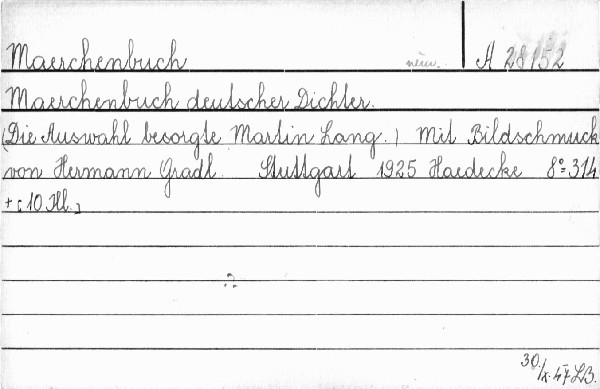 Maerchenbuch ném. A 28152
Maerchenbuch deutscher Dichter.
(Die Auswahl besorgte Martin Lang.) Mit Bildschmuck
von Hermann Gradl. Stuttgart 1925 Haedecke 8° 314
+ [10 Ill.]
30./X. 47 LB